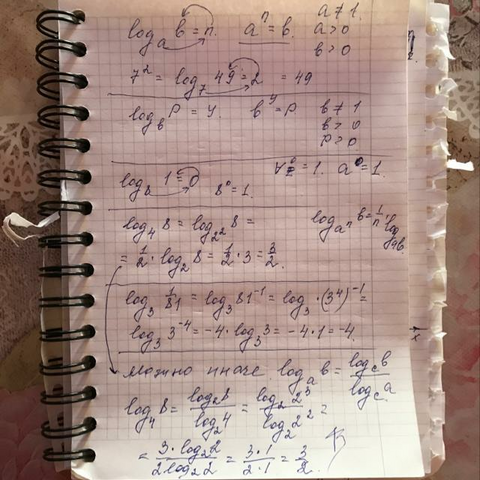 a ≠ 1.
logₐ b = n. aⁿ = b. a > 0
b > 0
7² = log₇ 49 = 2 = 49
log_b P = y. b^y = P b ≠ 1
b > 0
P > 0
log₈ 1 = 0 8⁰ = 1. = 1. a⁰ = 1.
log₄ 8 = log_{2²} 8 = log_{aⁿ} b = 1/n · log_a b
= 1/2 · log₂ 8 = 1/2 · 3 = 3/2.
log₃ 1/81 = log₃ 81⁻¹ = log₃ · (3⁴)⁻¹ =
log₃ 3⁻⁴ = -4 · log₃ 3 = -4 · 1 = -4.
Можно иначе logₐ b = log_c b / log_c a
log₄ 8 = log₂ 8 / log₂ 4 = log₂ 2³ / log₂ 2² =
= 3 · log₂ 2 / 2 log₂ 2 = 3 · 1 / 2 · 1 = 3/2.
x